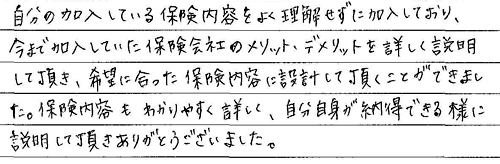 自分の加入している保険内容をよく理解せずに加入しており、
今まで加入していた保険会社のメリット、デメリットを詳しく説明
して頂き、希望に合った保険内容に設計して頂くことができまし
た。保険内容もわかりやすく詳しく、自分自身が納得できる様に
説明して頂きありがとうございました。